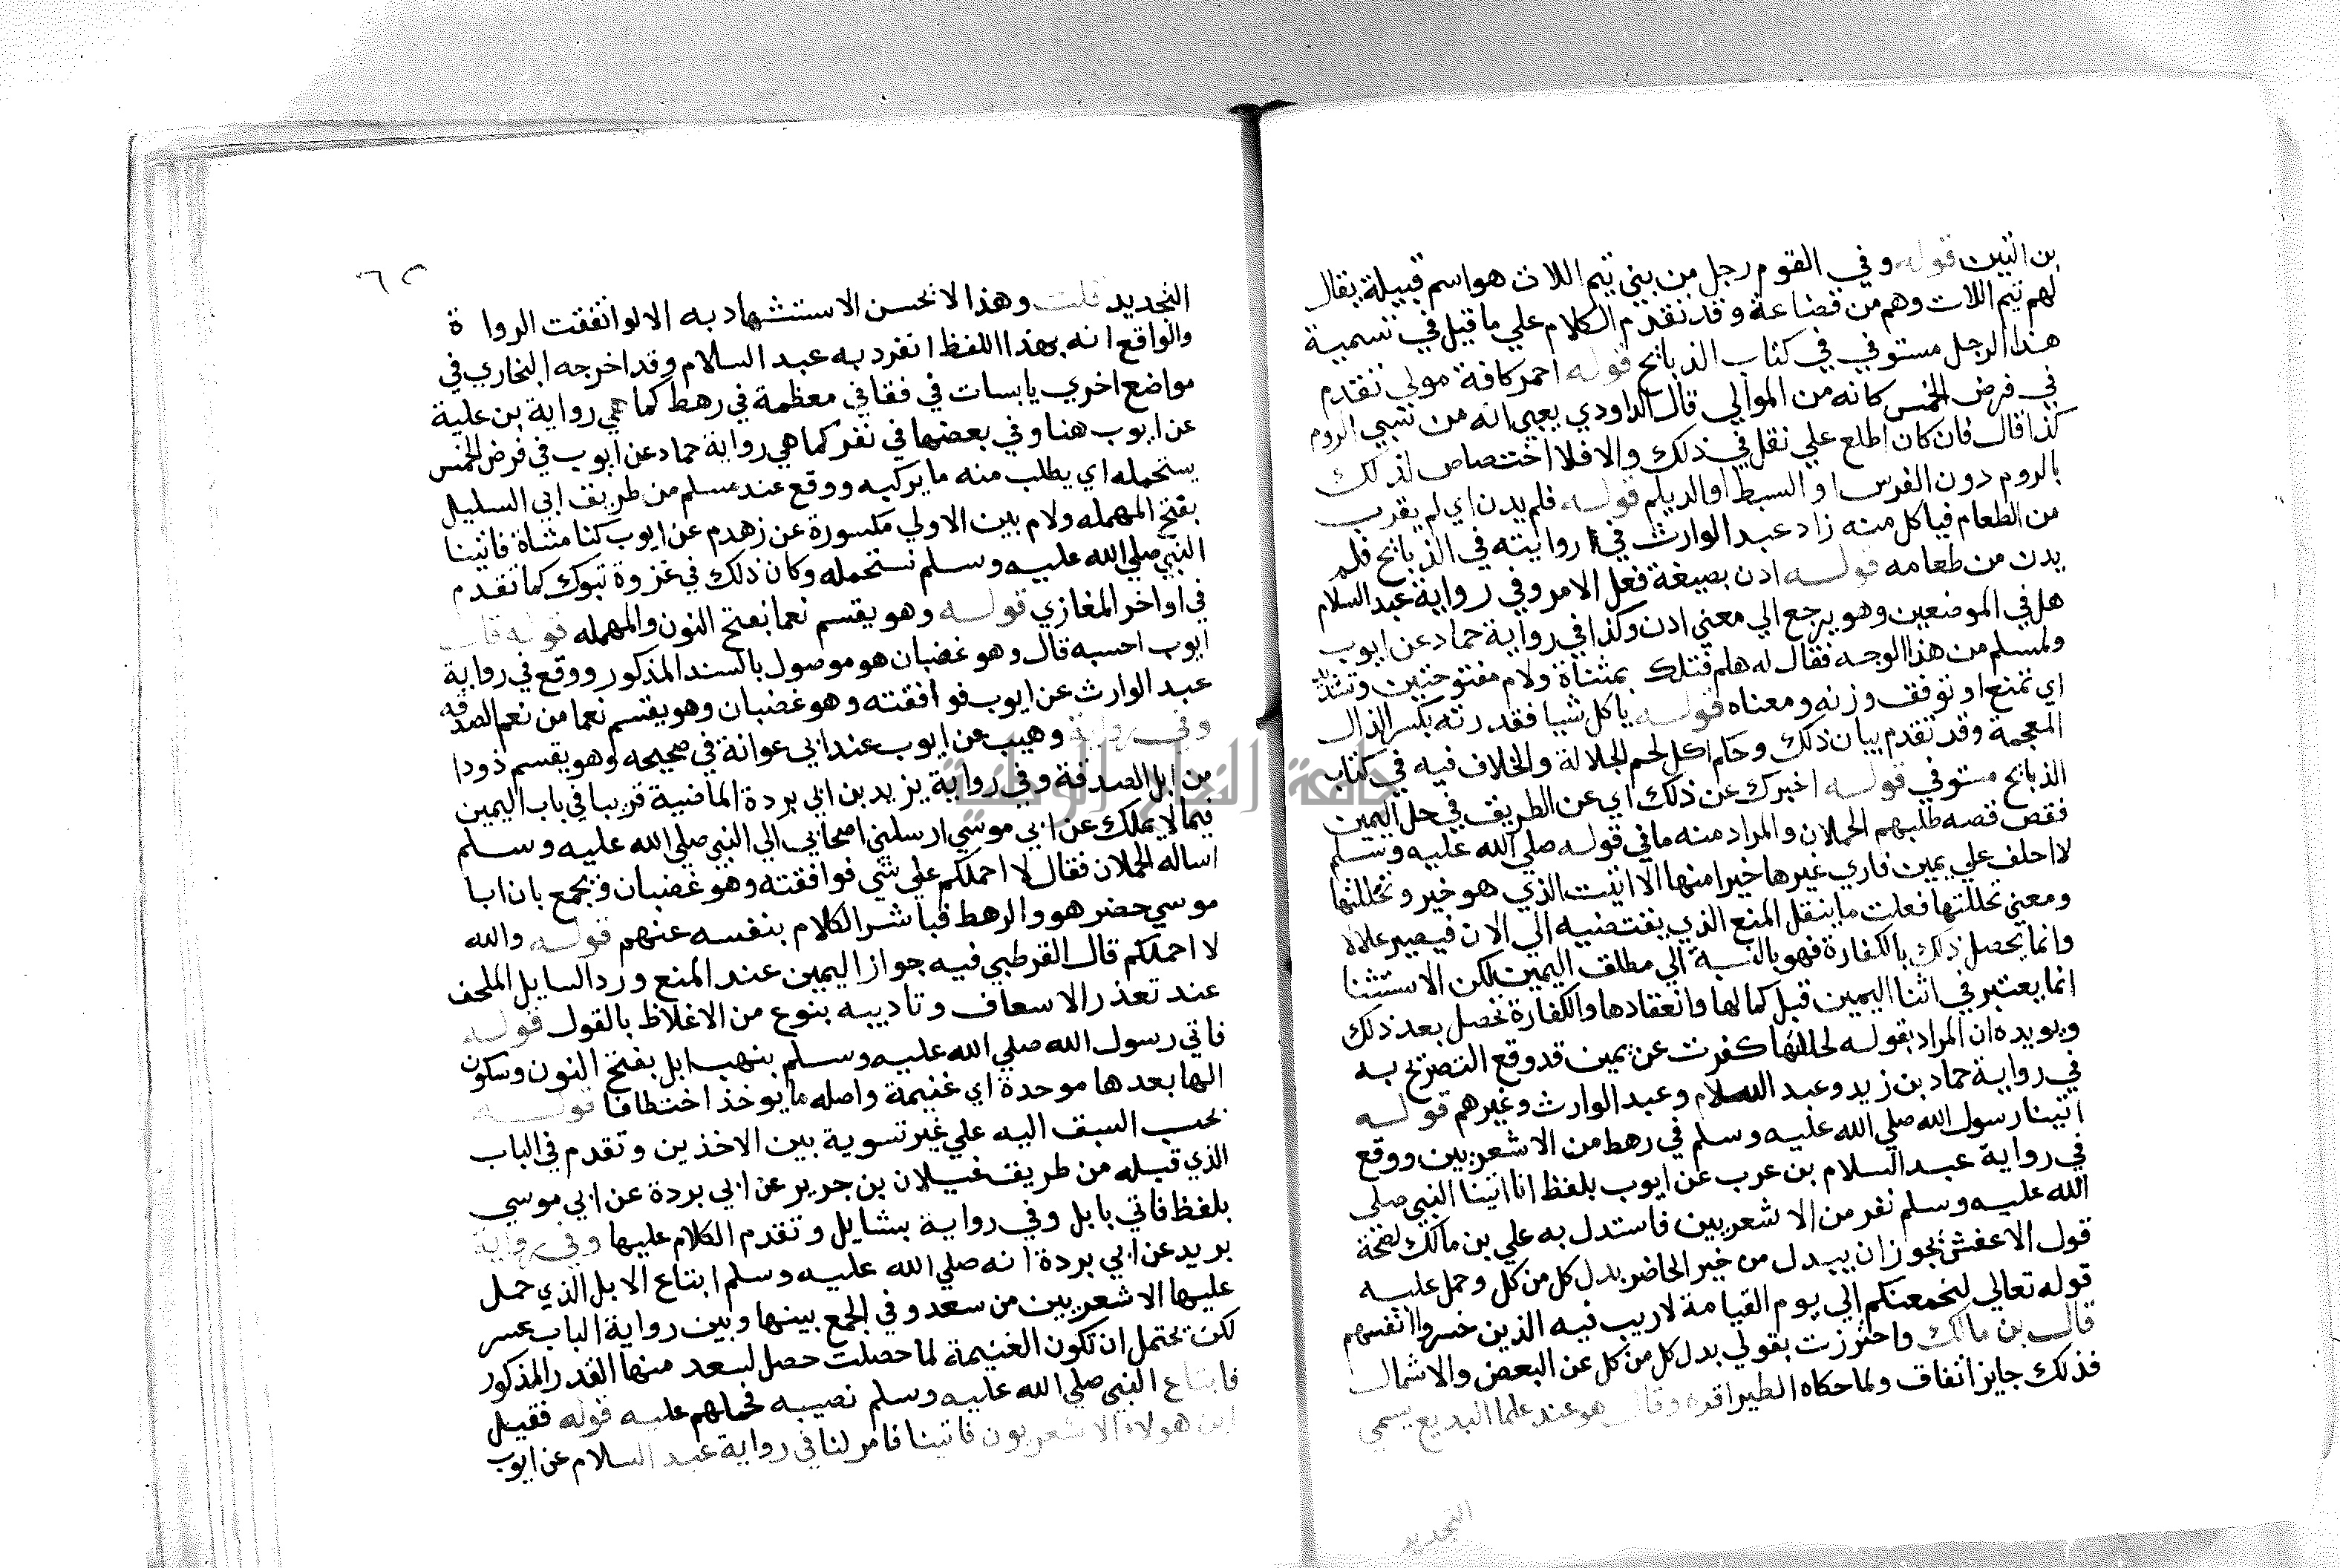 بن التين قوله وفي القوم رجل من بني تيم اللات هو اسم قبيلة يقال
لهم تيم اللات وهم من قضاعة وقد تقدم الكلام علي ما قيل في تسمية
هذا الرجل مستوفي في كتاب الذبايح قوله احمر كافة مولي تقدم
في فرض الخمس كانه من الموالي قال الداودي يعني انه من سبي الروم
كذا قال فان كان اطلع علي نقل في ذلك والا فلا اختصاص لذلك
بالروم دون الفرس او السبط او الديلم قوله فلم يدن اي لم يقرب
من الطعام فياكل منه زاد عبد الوارث في روايته في الذبايح فلم
يدن من طعامه قوله ادن بصيغة فعل الامر وفي رواية عبد السلام
هل في الموضعين وهو يرجع الي معني ادن وكذا في رواية حماد عن ايوب
ولمسلم من هذا الوجه فقال له هلم فتلك بمثناة ولام مفتوحتين وتشديد
اي تمنع او توقف وزنه ومعناه قوله ياكل شيا فقدرته بكسر الذال
المعجمة وقد تقدم بيان ذلك وحكم اكل لحم الجلالة والخلاف فيه في كتاب
الذبايح مستوفي قوله اخبرك عن ذلك اي عن الطريق في حل اليمين
فقص قصه طلبهم الحملان والمراد منه ما في قوله صلي الله عليه وسلم
لا احلف علي يمين فاري غيرها خيرا منها الا اتيت الذي هو خير وتحللتها
ومعني تحللتها فعلت ما ينقل المنع الذي يقتضيه الي الاذن فيصير حلالا
وانما يحصل ذلك بالكفارة فهو بالنسبة الي مطلق اليمين لكن الاستثنا
انما يعتبر في اثنا اليمين قبل كمالها وانعقادها والكفارة تحصل بعد ذلك
ويويده ان المراد بقوله تحللتها كفرت عن يمين قد وقع التصريح به
في رواية حماد بن زيد وعبد السلام وعبد الوارث وغيرهم قوله
اتينا رسول الله صلي الله عليه وسلم في رهط من الاشعريين ووقع
في رواية عبد السلام بن عرب عن ايوب بلفظ انا اتينا النبي صلي
الله عليه وسلم نفر من الاشعريين فاستدل به علي بن مالك لصحة
قول الاخفش يجوز ان يبدل من خير الحاضر بدل كل من كل وحمل عليه
قوله تعالي لنجمعنكم الي يوم القيامة لا ريب فيه الذين خسروا انفسهم
قال بن مالك واحترزت بقولي بدل كل من كل عن البعض والاشمال
فذلك جايز اتفاق ولما حكاه الطيب اقره وقال هو عند علما البديع يسمي
التجريد
٦٢
التجديد قلت وهذا لا يحسن الاستشهاد به الا لو اتفقت الرواة
والواقع انه بهذا اللفظ انفرد به عبد السلام وقد اخرجه البخاري في
مواضع اخري يابسات في فقافي معظمة في رهط كما هي رواية بن علية
عن ايوب هنا وفي بعضها في نفر كما هي رواية حماد عن ايوب في فرض الخمس
يستحمله اي يطلب منه ما يركبه ووقع عند مسلم من طريق ابي السليل
بفتح المهمله ولام بين الاولي مكسورة عن زهدم عن ايوب كنا مشاة فاتينا
النبي صلي الله عليه وسلم نستحمله وكان ذلك في غزوة تبوك كما تقدم
في اواخر المغازي قوله وهو يقسم نعما بفتح النون والمهمله قوله قال
ايوب احسبه قال وهو غضبان هو موصول بالسند المذكور ووقع في رواية
عبد الوارث عن ايوب فوافقته وهو غضبان وهو يقسم نعما من نعم الصدقه
وفي رواية وهيب عن ايوب عند ابي عوانة في صحيحه وهو يقسم ذودا
من ابل الصدقة وفي رواية يزيد بن ابي بردة الماضية قريبا في باب اليمين
فيما لا يملك عن ابي موسي ارسلني اصحابي الي النبي صلي الله عليه وسلم
اساله الحملان فقال لا احملكم علي شي فوافقته وهو غضبان ويجمع بان ابا
موسي حضر هو والرهط فباشر الكلام بنفسه عنهم قوله والله
لا احملكم قال القرطبي فيه جواز اليمين عند المنع ورد السايل الملحف
عند تعذر الاسعاف وتاديبه بنوع من الاغلاظ بالقول قوله
فاتي رسول الله صلي الله عليه وسلم بنهب ابل بفتح النون وسكون
الها بعدها موحدة اي غنيمة واصله ما يوخذ اختطافا قوله
بحسب السبق اليه علي غير تسوية بين الاخذين وتقدم في الباب
الذي قبله من طريق غيلان بن جرير عن ابي بردة عن ابي موسي
بلفظ فاتي بابل وفي رواية بشايل وتقدم الكلام عليها وفي رواية
بريد عن ابي بردة انه صلي الله عليه وسلم ابتاع الابل الذي حمل
عليها الاشعريين من سعد وفي الجمع بينها وبين رواية الباب عسر
لكن يحتمل ان تكون الغنيمة لما حصلت حصل لسعد منها القدر المذكور
فابتاع النبي صلي الله عليه وسلم نصيبه فحملهم عليه قوله فقيل
اين هولاء الاشعريون فاتينا فامر لنا في رواية عبد السلام عن ايوب
جامعة الوطنية